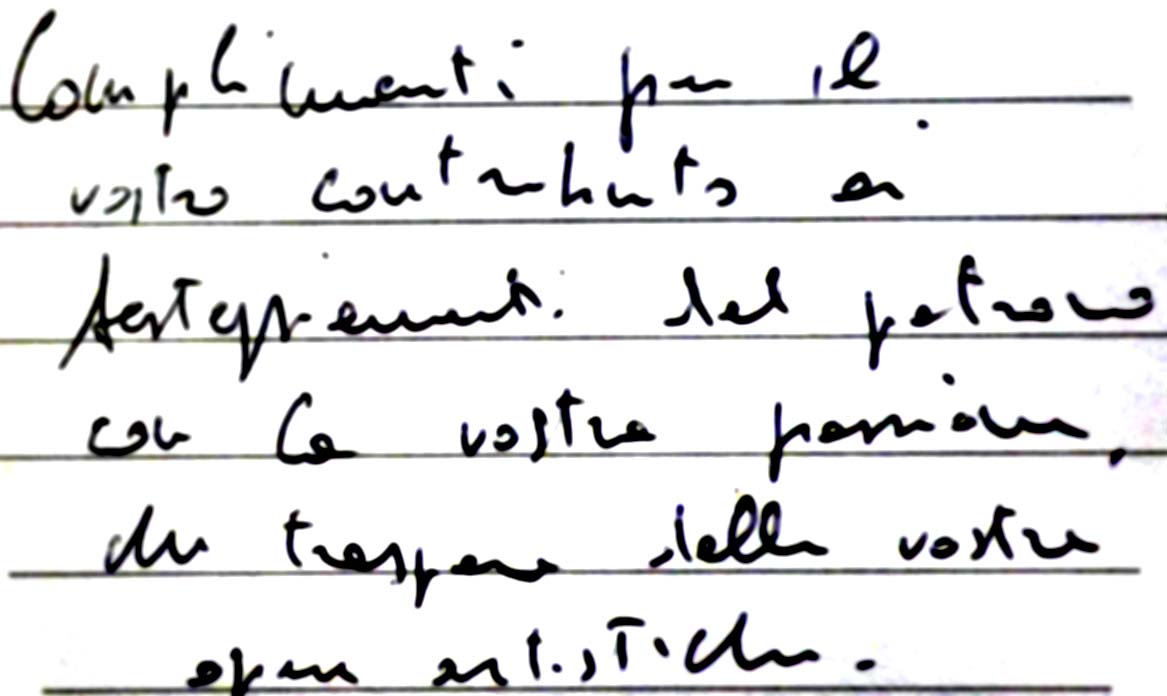 Complimenti per il
vostro contributo ai
festeggiamenti del patrono
con la vostra passione,
che traspare dalle vostre
opere artistiche.